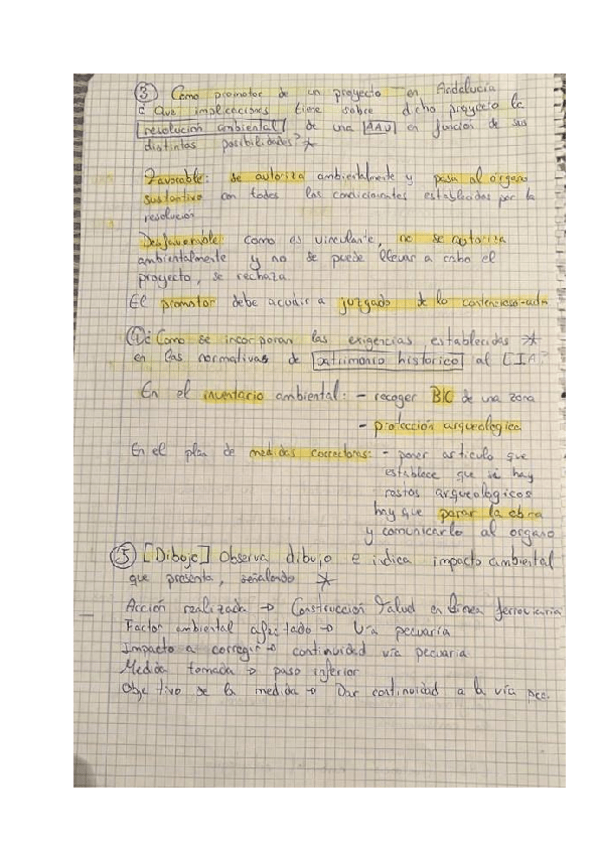 ③ Como promotor de un proyecto en Andalucía
¿Que implicaciones tiene sobre dicho proyecto la
resolución ambiental de una AAU en función de sus
distintas posibilidades? *
Favorable: se autoriza ambientalmente y pasa al organo
sustantivo con todos los condicionantes establecidos por la
resolución
Desfavorable: como es vinculante, no se autoriza
ambientalmente y no se puede llevar a cabo el
proyecto, se rechaza.
El promotor debe acudir a juzgado de lo contencioso-adm
④ ¿Como se incorporan las exigencias establecidas *
en las normativas de patrimonio historico al EIA?
En el inventario ambiental: - recoger BIC de una zona
- protección arqueologica
En el plan de medidas correctoras: - poner articulo que
establece que si hay
restos arqueologicos
hay que parar la obra
y comunicarlo al organo
⑤ [Dibujo] Observa dibujo e indica impacto ambiental
que presenta, señalando *
Acción realizada → Construcción talud en linea ferroviaria
Factor ambiental afectado → Vía pecuaria
Impacto a corregir → continuidad vía pecuaria
Medida tomada → paso inferior
Objetivo de la medida → Dar continuidad a la vía pec.